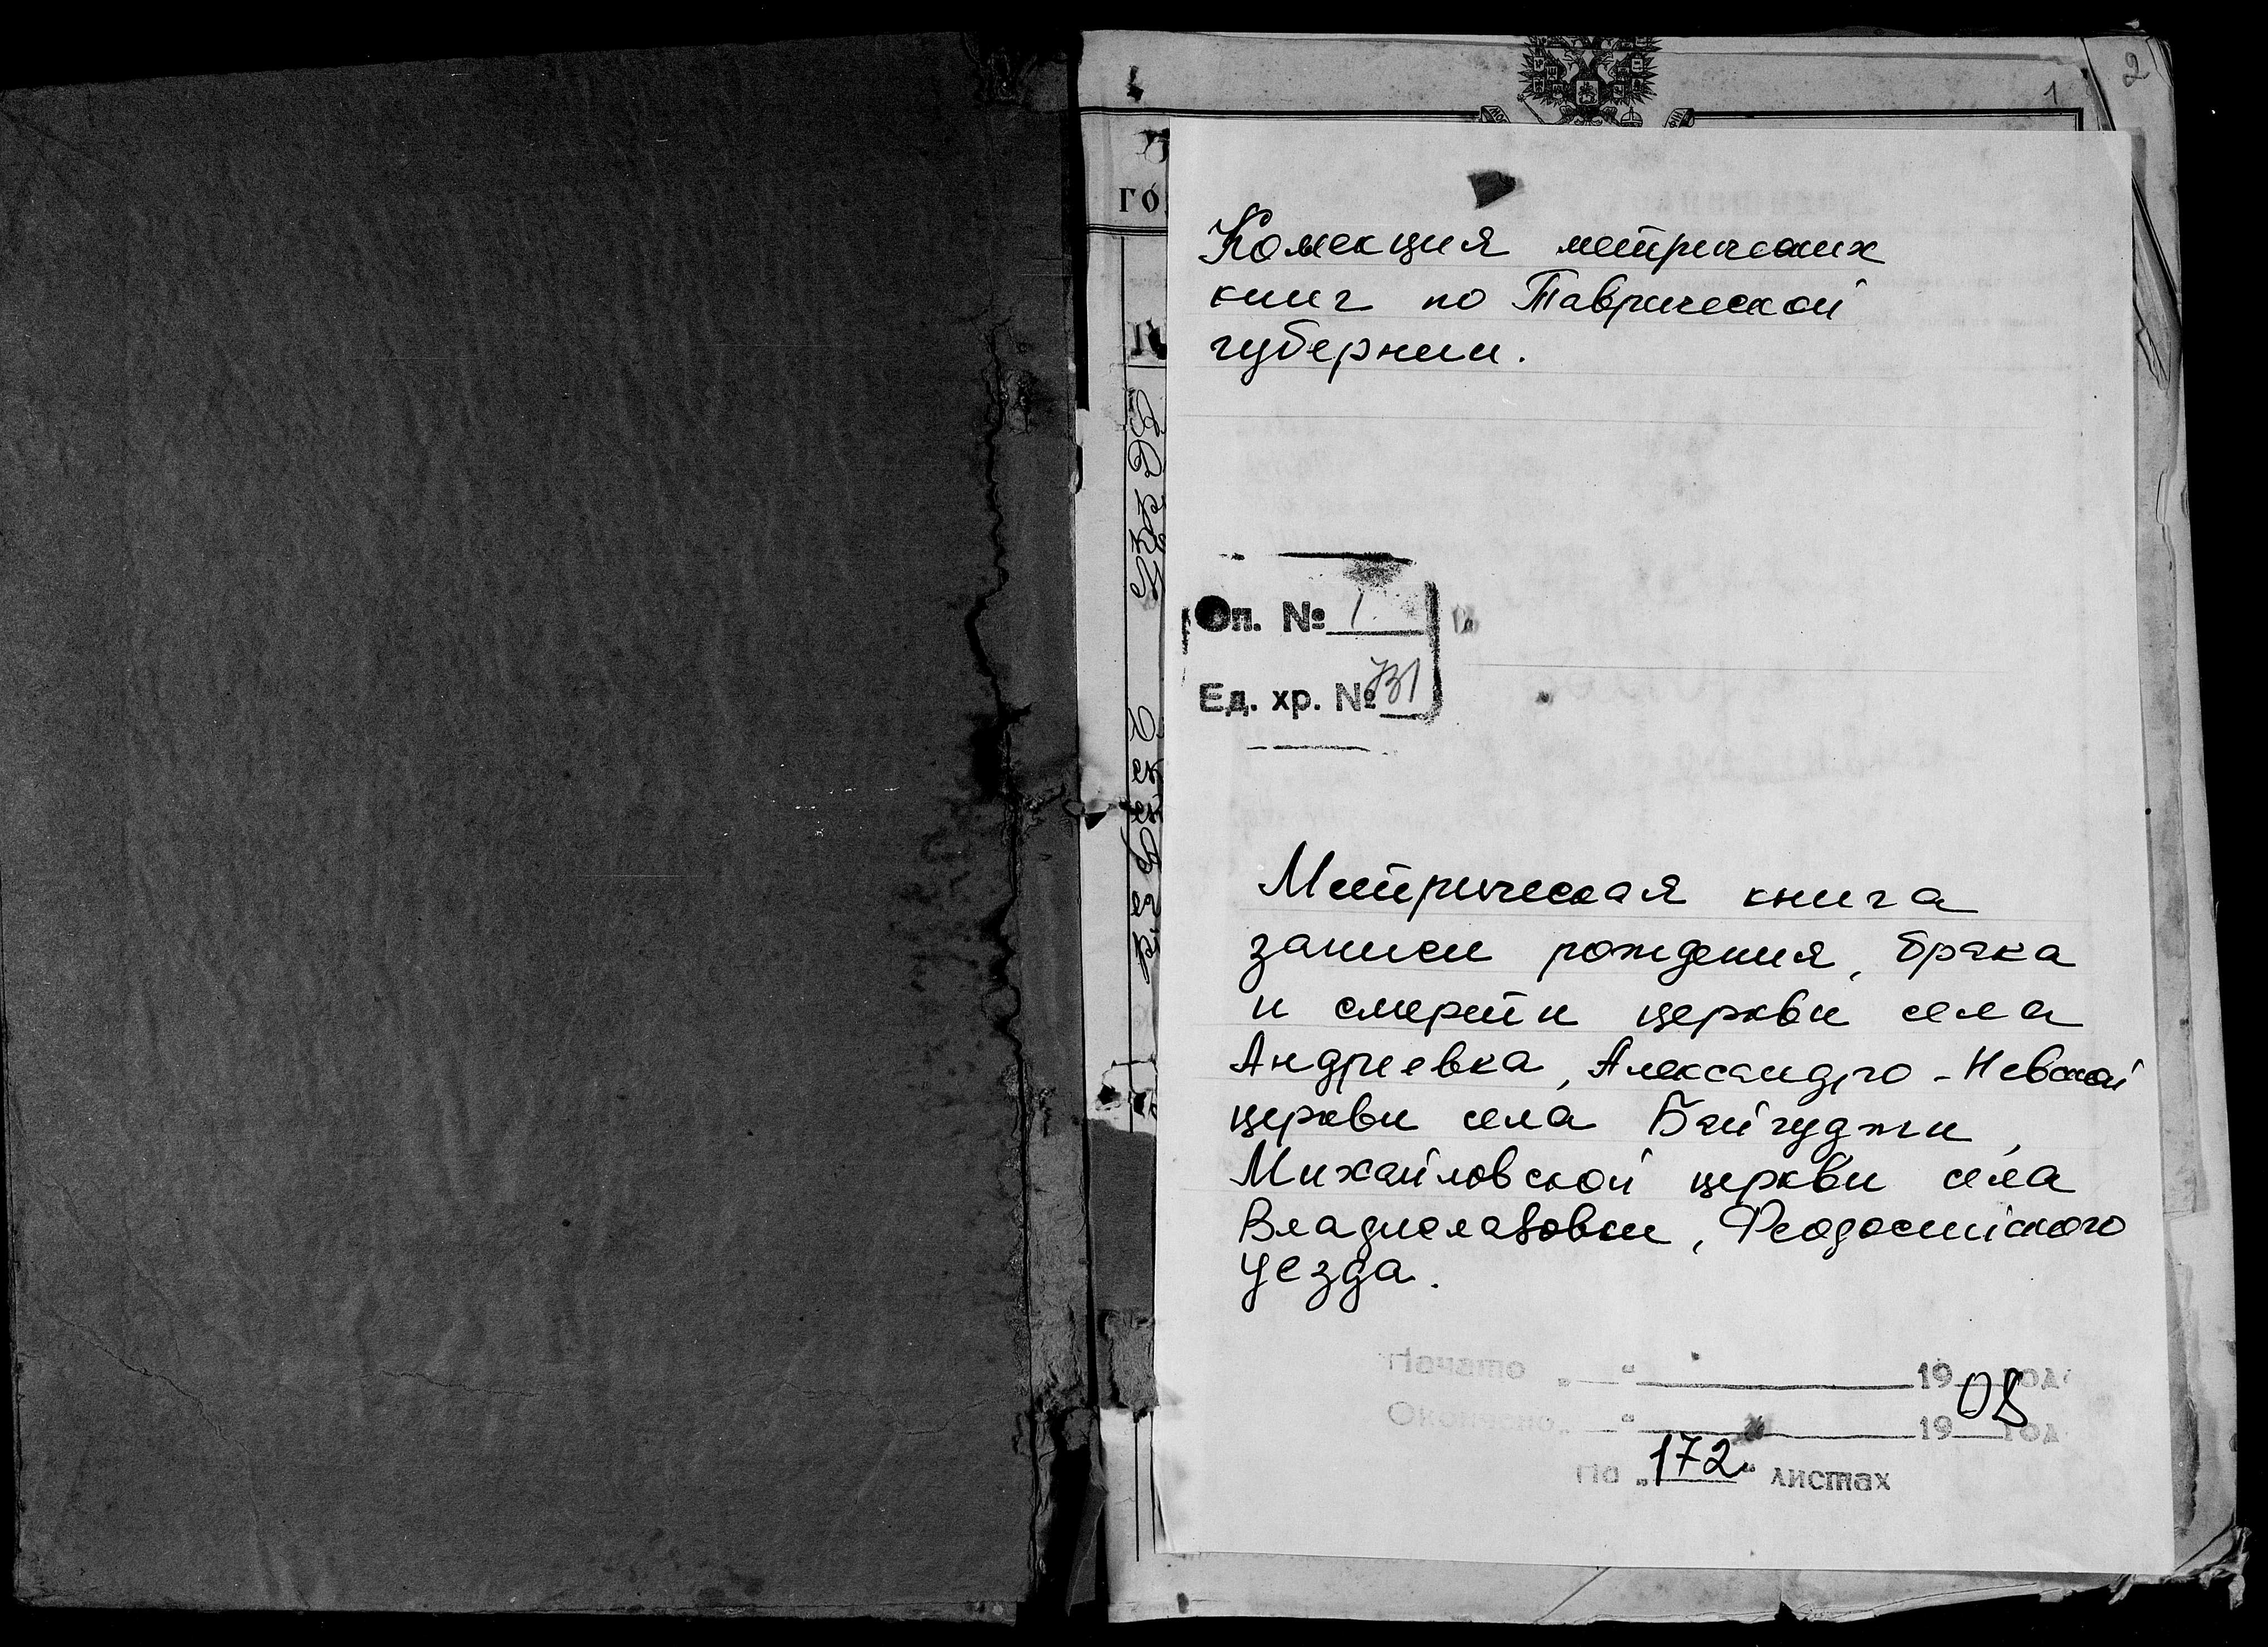 2
1
ГО
Коллекция метрических
книг по Таврической
губернии.
Оп. № 1
Ед. хр. № 731
Метрическая книга
записи рождения, брака
и смерти церкви села
Андреевка, Александро-Невской
церкви села Байгуджи,
Михайловской церкви села
Владиславовки, Феодосийского
уезда.
Начато „ " 19 08 года
Окончено „ " 19 год
На „172" листах